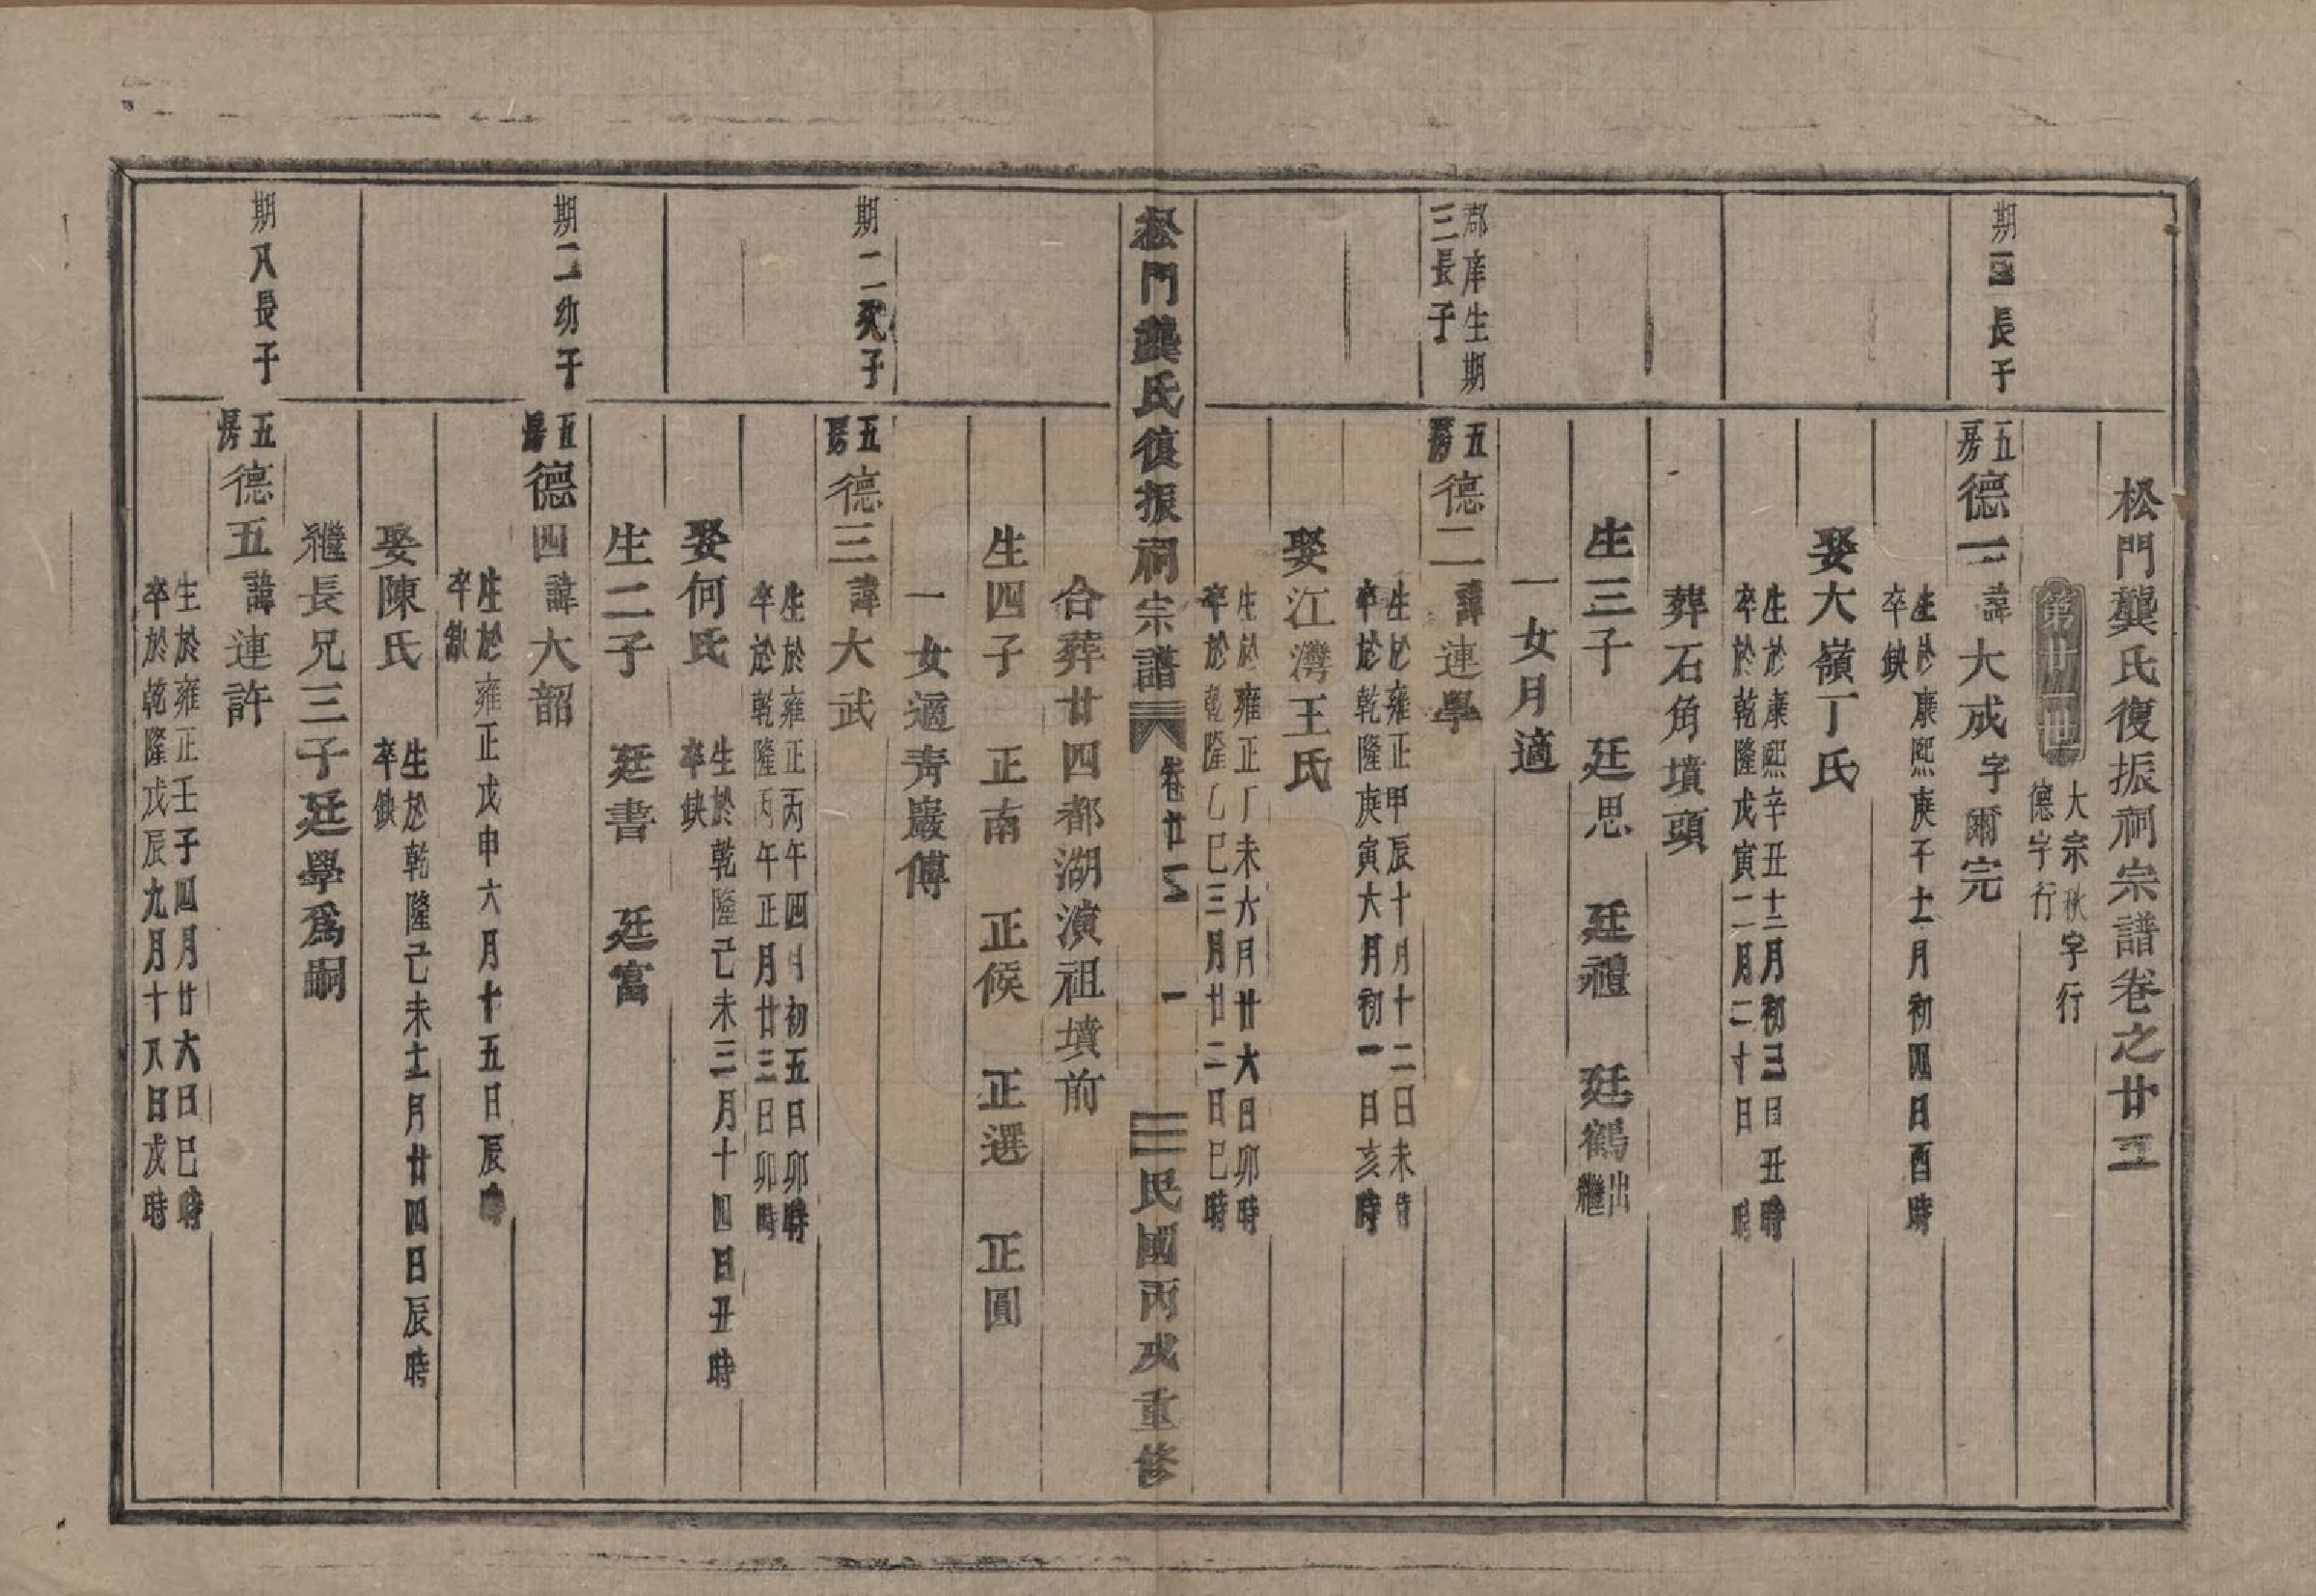 松門龔氏復振祠宗譜卷之廿三
第廿四世
大宗秋字行
德字行
期三長子
五房德一諱大成字爾完
生於康熙庚子十一月初四日酉時
卒缺
娶大嶺丁氏
生於康熙辛丑十二月初三日丑時
卒於乾隆戊寅二月二十日 時
葬石角墳頭
生三子 廷思 廷禮 廷鶴出繼
一女月適
郡庠生期三長子
五房德二諱連學
生於雍正甲辰十月十二日未時
卒於乾隆庚寅六月初一日亥時
娶江灣王氏
生於雍正丁未六月廿六日卯時
卒於乾隆乙巳三月廿二日巳時
松門龔氏復振祠宗譜 卷廿三 一 民國丙戌重修
合葬廿四都湖濱祖墳前
生四子 正南 正候 正選 正圓
一女適青巖傅
期二次子
五房德三諱大武
生於雍正丙午四月初五日卯時
卒於乾隆丙午正月廿三日卯時
娶何氏
生於乾隆己未三月十四日丑時
卒缺
生二子 廷書 廷富
期二幼子
五房德四諱大韶
生於雍正戊申六月十五日辰時
卒缺
娶陳氏
生於乾隆己未十一月廿四日辰時
卒缺
繼長兄三子廷學爲嗣
期八長子
五房德五諱連許
生於雍正壬子四月廿六日巳時
卒於乾隆戊辰九月十八日戌時